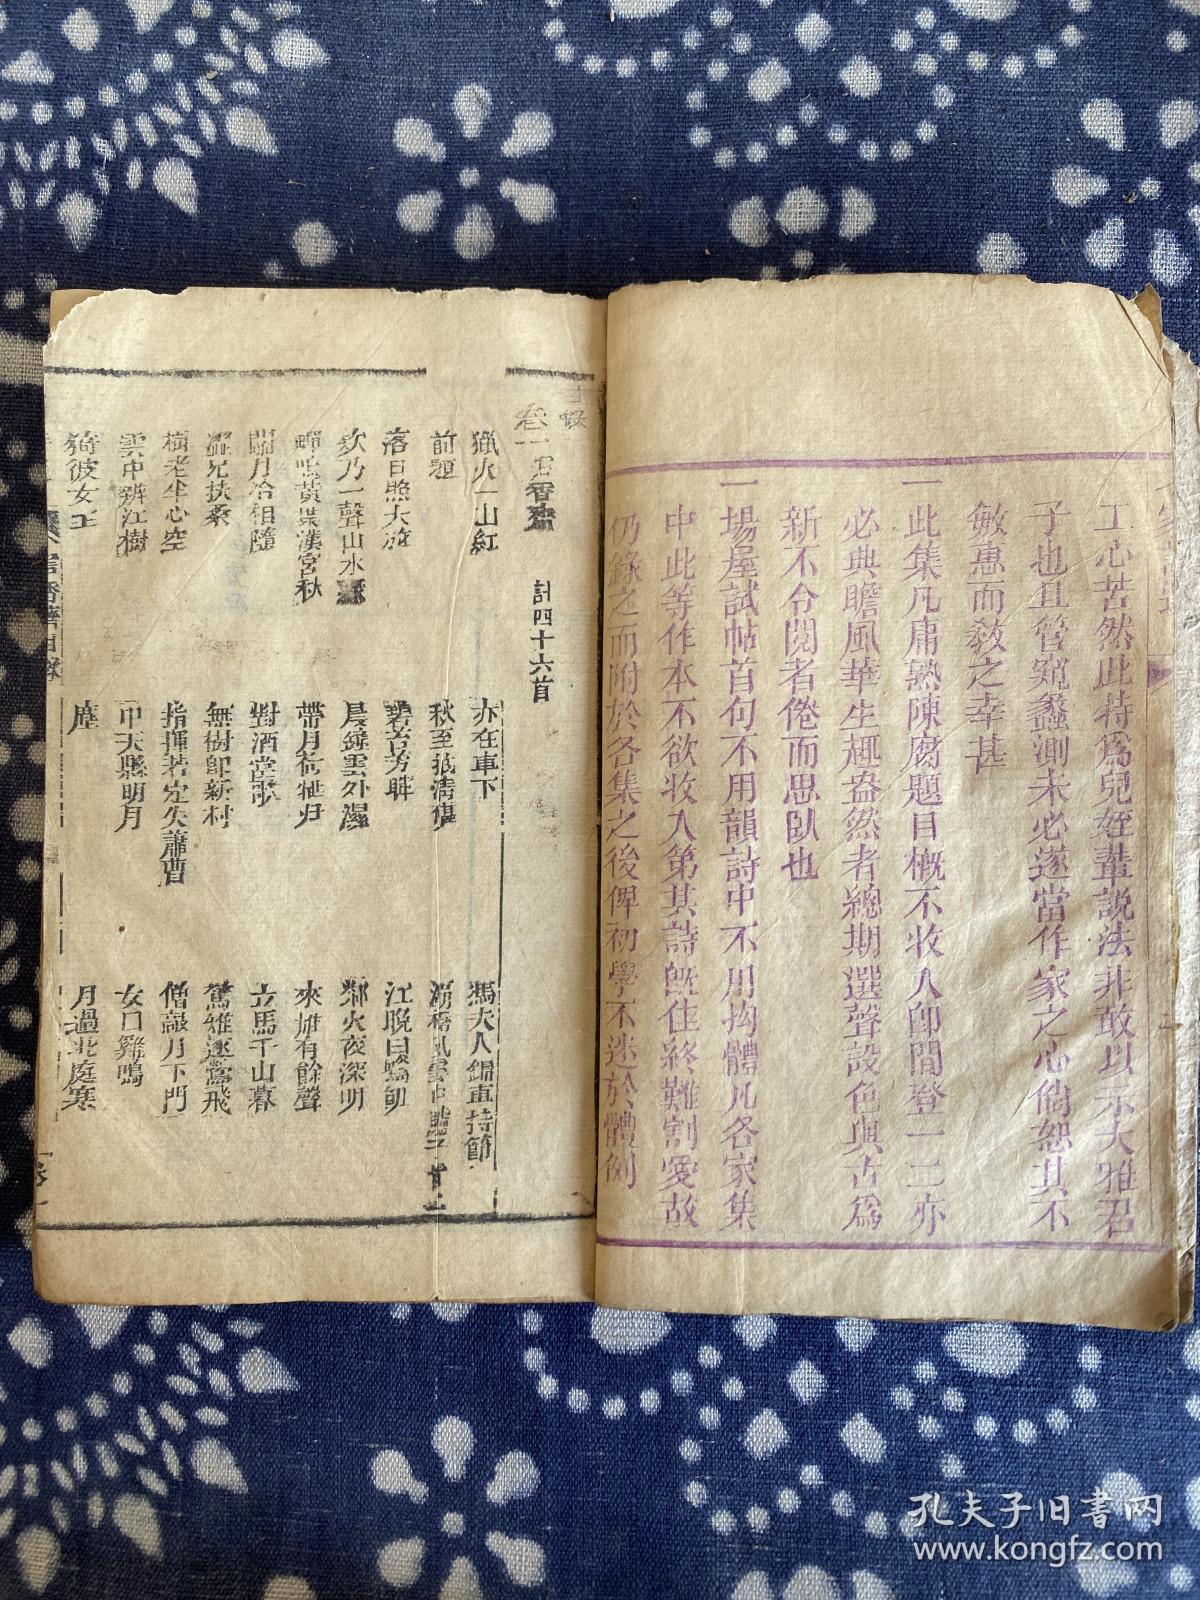 工心苦然此特為兒姪輩説法非敢以示大雅君
子也且管窺蠡測未必遂當作家之心倘恕其不
敏惠而敎之幸甚
一此集凡庸熟陳腐題目槪不收入卽間登一二亦
必典瞻風華生趣盎然者總期選聲設色與古為
新不令閱者倦而思臥也
一場屋試帖首句不用韻詩中不用拗體凡各家集
中此等作本不欲收入第其詩旣佳終難割愛故
仍錄之而附於各集之後俾初學不迷於體例
目錄
卷一 香 計四十六首
獵火一山紅 亦在車下 馮夫人錦車持節
前題 秋至 清
落日照大旗 碧 芳 江晚白鷗飢
欸乃一聲山水 晨 雲外濕 鄰火夜深明
蟬鳴黃葉漢宮秋 帶月荷 归 來雄有餘聲
關月冷相隨 對酒當歌 立馬千山暮
扶桑 無樹卽新村 驚雉逐鶯飛
樹老半心空 指揮若定失蕭曹 僧敲月下門
雲中辨江樹 中天懸明月 女口雞鳴
彼女 塵 月過北庭寒
孔夫子旧书网
www.kongfz.com